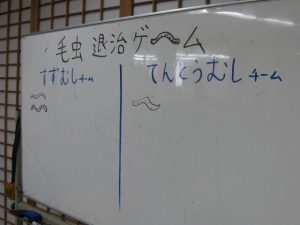 毛虫退治ゲーム
すずむしチーム
てんとうむしチーム